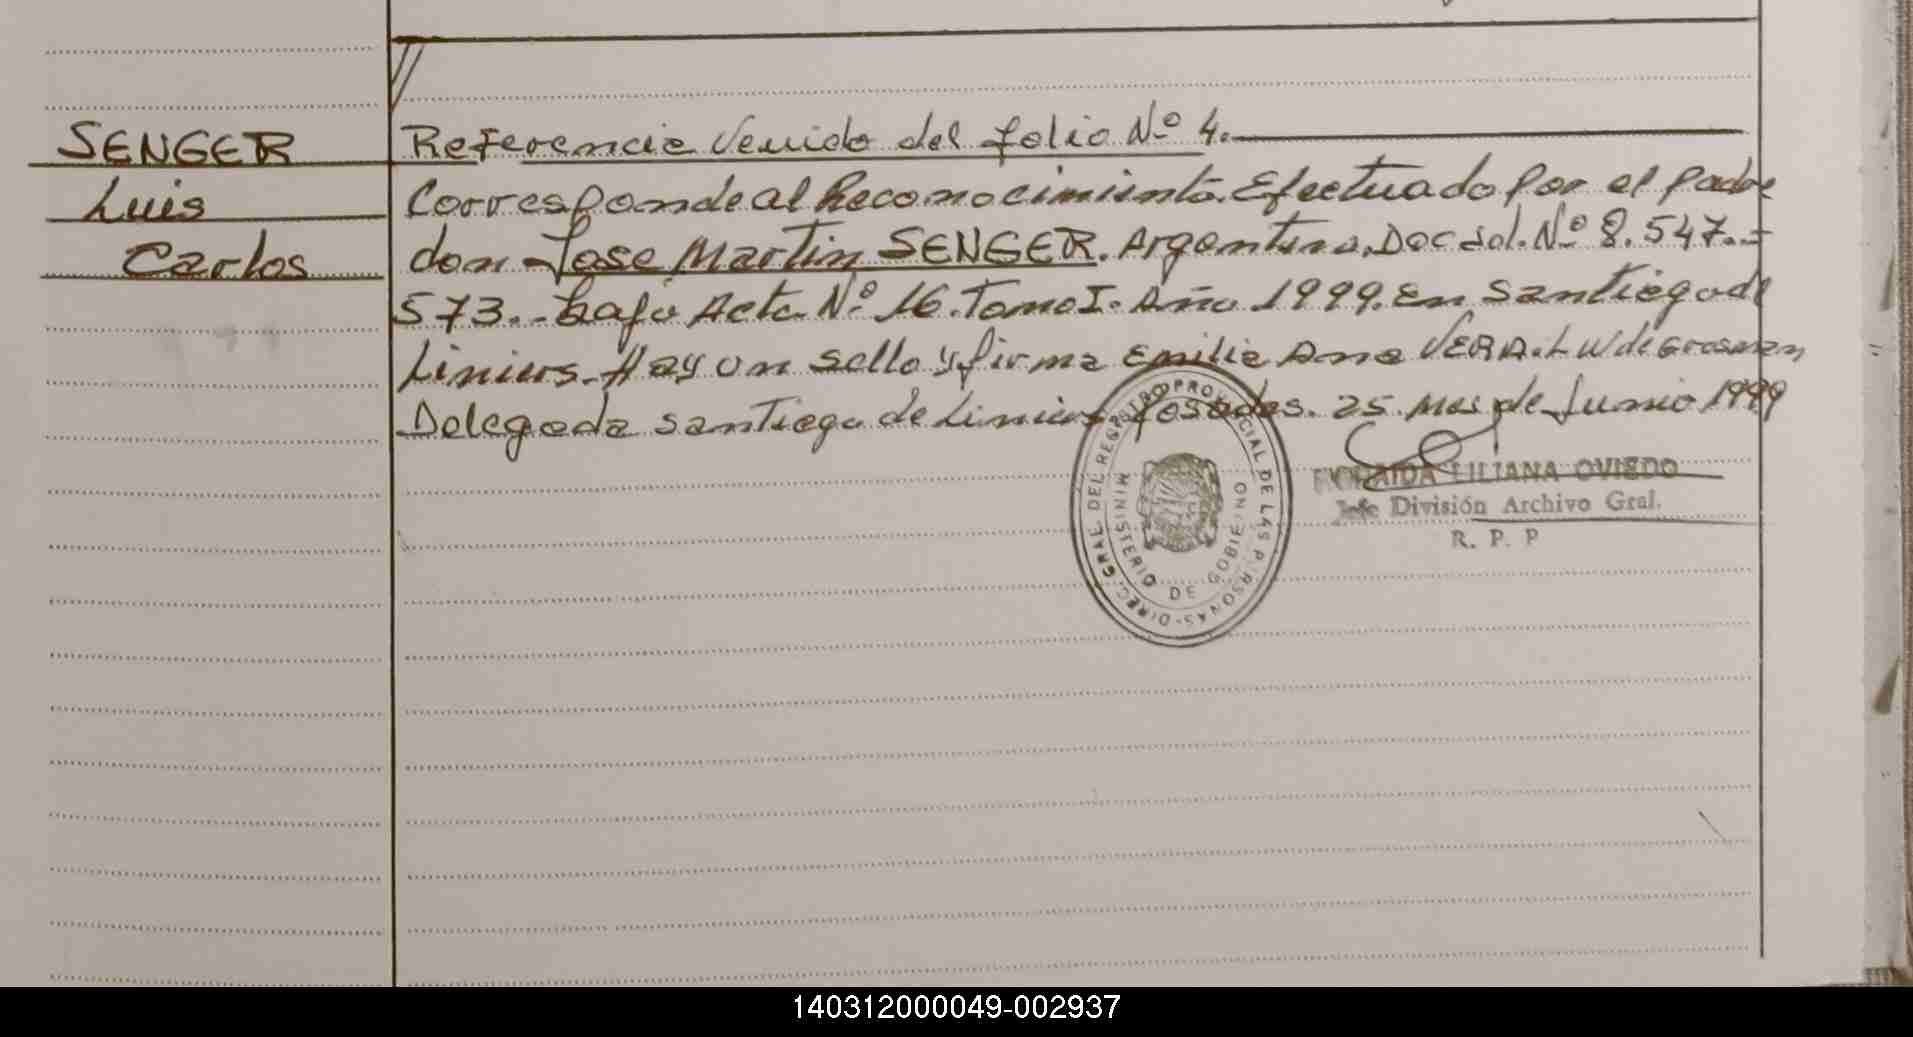 SENGER
Luis
Carlos
Referencia Venido del folio Nº 4.
Corresponde al Reconocimiento. Efectuado por el padre
don Jose Martin SENGER. Argentino, Doc Id. Nº 8.547.-
573.- bajo Acta Nº 16. Tomo I. Año 1999. En Santiago de
Liniers. Hay un sello y firma Emilia Ana VERA. de Grosman
Delegada Santiago de Liniers Posadas. 25. Mes de Junio 1999
DIREC. GRAL. DEL REGISTRO PROVINCIAL DE LAS PERSONAS
MINISTERIO DE GOBIERNO
LILIANA OVIEDO
Jefe División Archivo Gral.
R. P. P
140312000049-002937